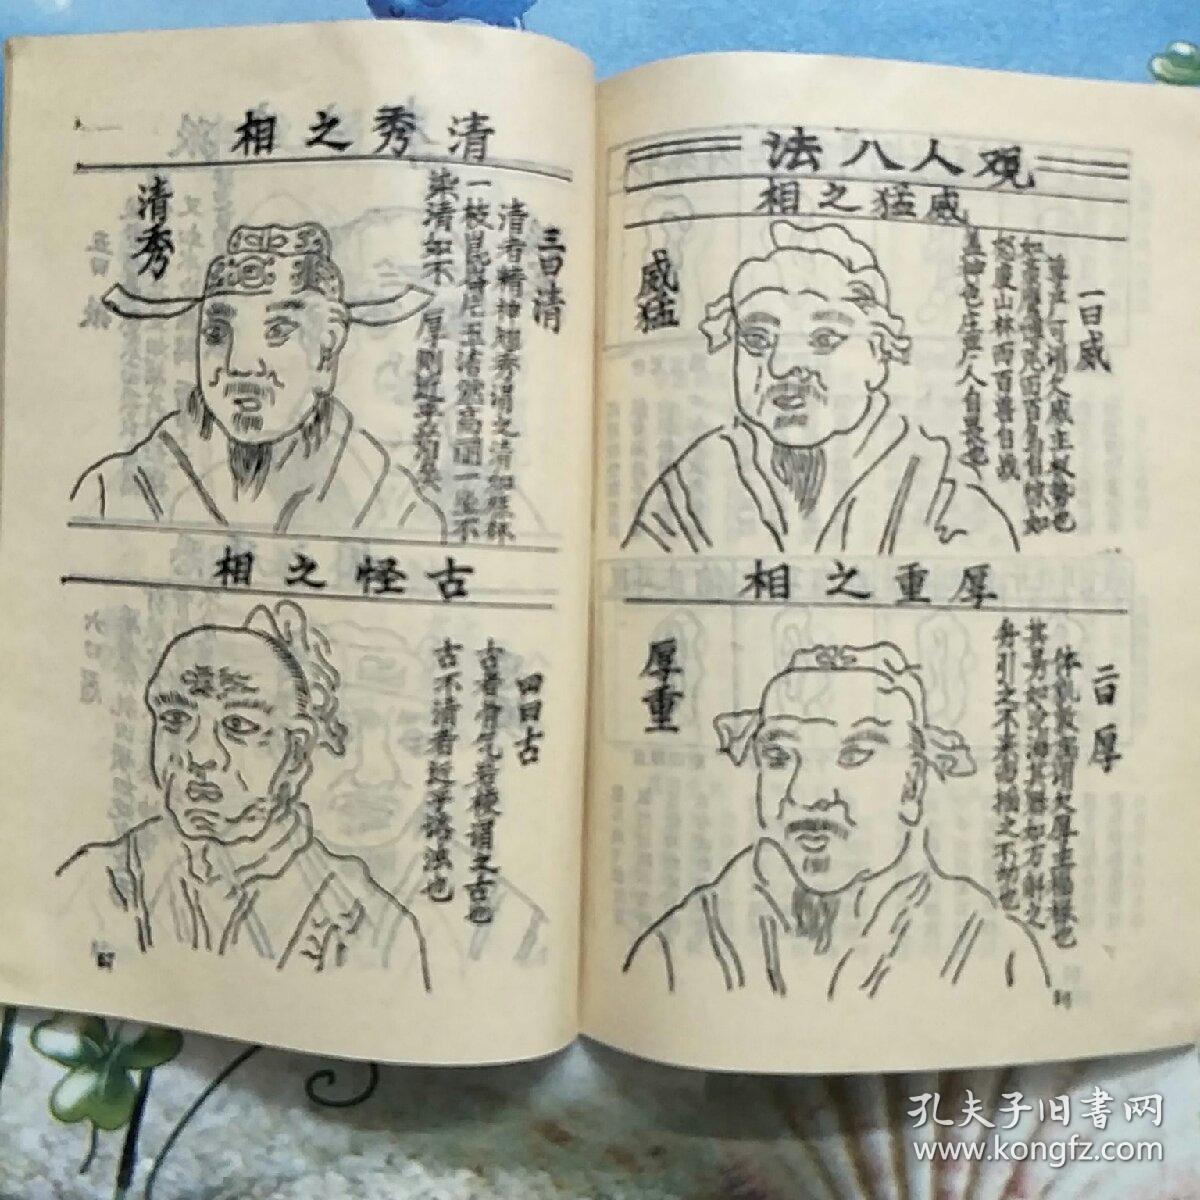 觀人八法
威猛之相
一曰威
尊严可謂之威主权勢也
如豪鷹博兎而百鳥自惊如
怒虎山林而百兽自战
盖神也庄严人自畏也
威猛
厚重之相
二曰厚
体貌敦高謂之厚主福祿也
其男如沧海其器如万斛之
舟引之不来而搖之不动也
厚重
清秀之相
三曰清
清者精神翹秀謂之清如桂林
一枝崑崙片玉洒然高丽一尘不
染清如不厚則近乎薄矣
清秀
古怪之相
四曰古
古者骨气岩棱謂之古也
古不清者近乎
也
孔夫子旧書网
www.kongfz.com